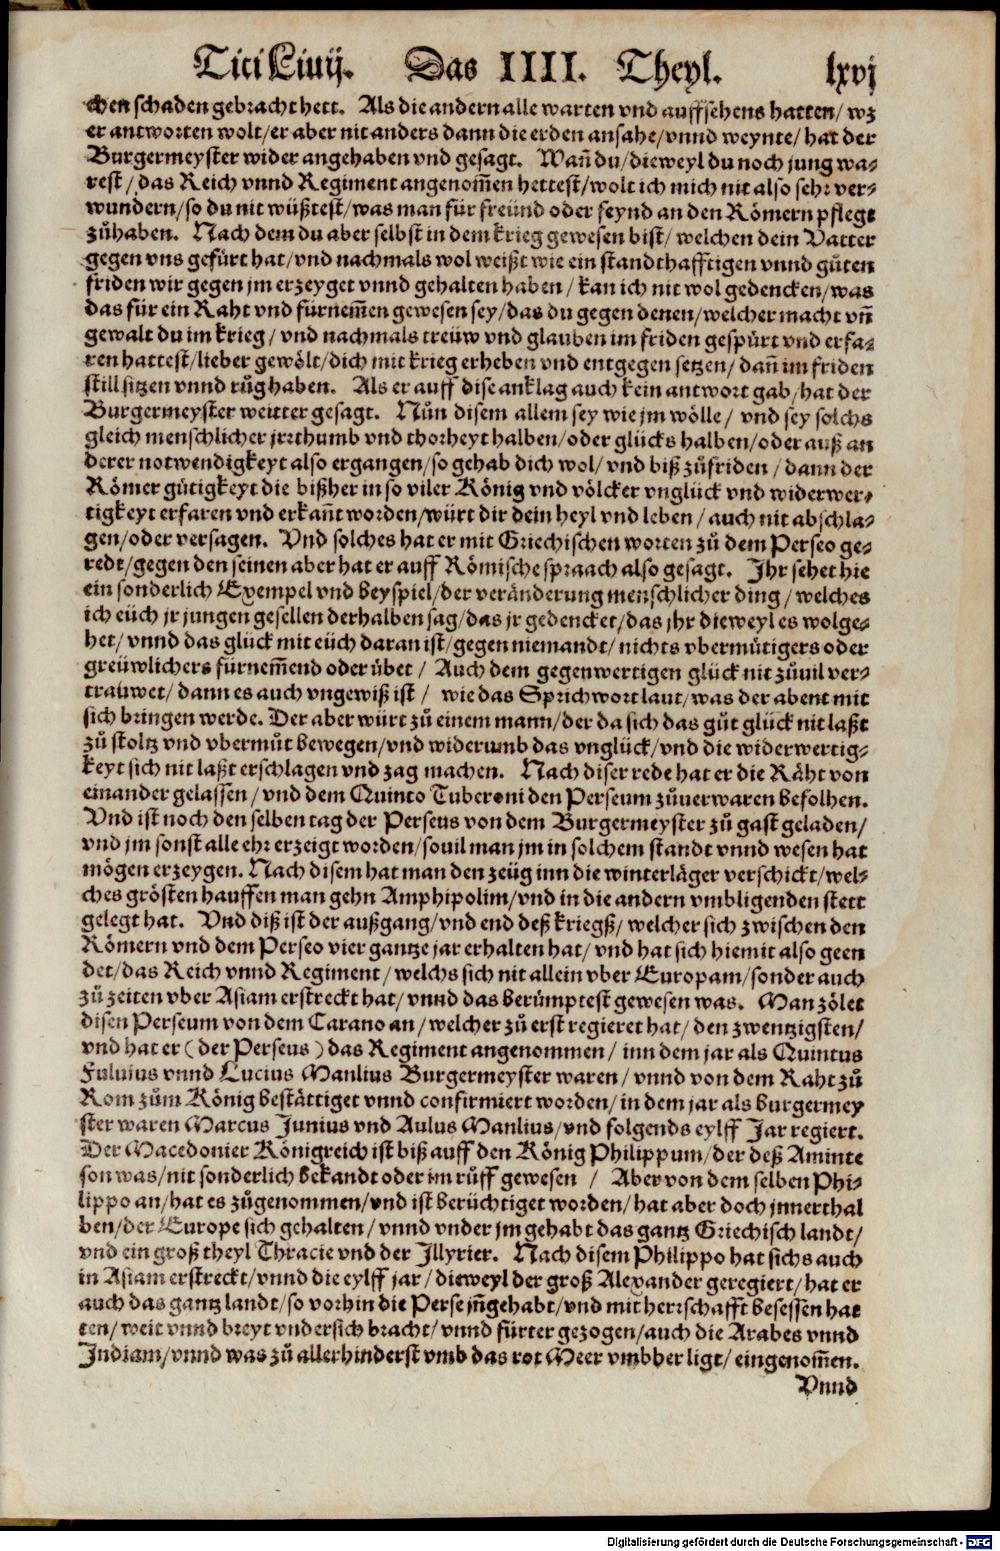 Titi Liuij. Das IIII. Theyl. lxvj
chen schaden gebracht hett. Als die andern alle warten vnd auffsehens hatten/ wz
er antworten wolt/ er aber nit anders dann die erden ansahe/ vnnd weynte/ hat der
Burgermeyster wider angehaben vnd gesagt. Wañ du/ dieweyl du noch jung wa-
rest/ das Reich vnnd Regiment angenom̃en hettest/ wolt ich mich nit also sehr ver-
wundern/ so du nit wüßtest/ was man für freünd oder feynd an den Römern pflegt
zůhaben. Nach dem du aber selbst in dem krieg gewesen bist/ welchen dein Vatter
gegen vns gefürt hat/ vnd nachmals wol weißt wie ein standthafftigen vnnd gůten
friden wir gegen jm erzeyget vnnd gehalten haben/ kan ich nit wol gedencken/ was
das für ein Raht vnd fürnem̃en gewesen sey/ das du gegen denen/ welcher macht vñ
gewalt du im krieg/ vnd nachmals treüw vnd glauben im friden gespürt vnd erfa-
ren hattest/ lieber gewölt/ dich mit krieg erheben vnd entgegen setzen/ dañ im friden
still sitzen vnnd růg haben. Als er auff dise anklag auch kein antwort gab/ hat der
Burgermeyster weitter gesagt. Nůn disem allem sey wie jm wölle/ vnd sey solchs
gleich menschlicher jrrthumb vnd thorheyt halben/ oder glücks halben/ oder auß an
derer notwendigkeyt also ergangen/ so gehab dich wol/ vnd biß zůfriden/ dann der
Römer gütigkeyt die bißher in so viler König vnd völcker vnglück vnd widerwer-
tigkeyt erfaren vnd erkañt worden/ würt dir dein heyl vnd leben/ auch nit abschla-
gen/ oder versagen. Vnd solches hat er mit Griechischen worten zů dem Perseo ge-
redt/ gegen den seinen aber hat er auff Römische spraach also gesagt. Ihr sehet hie
ein sonderlich Exempel vnd beyspiel/ der veränderung menschlicher ding/ welches
ich eüch jr jungen gesellen derhalben sag/ das jr gedencket/ das jhr dieweyl es wolge-
het/ vnnd das glück mit eüch daran ist/ gegen niemandt/ nichts vbermütigers oder
greüwlichers fürnem̃end oder übet/ Auch dem gegenwertigen glück nit zůuil ver-
trauwet/ dann es auch vngewiß ist/ wie das Sprichwort laut/ was der abent mit
sich bringen werde. Der aber würt zů einem mann/ der da sich das gůt glück nit laßt
zů stoltz vnd vbermůt bewegen/ vnd widerumb das vnglück/ vnd die widerwertig-
keyt sich nit laßt erschlagen vnd zag machen. Nach diser rede hat er die Räht von
einander gelassen/ vnd dem Quinto Tuberoni den Perseum zůuerwaren befolhen.
Vnd ist noch den selben tag der Perseus von dem Burgermeyster zů gast geladen/
vnd jm sonst alle ehr erzeigt worden/ souil man jm in solchem standt vnnd wesen hat
mögen erzeygen. Nach disem hat man den zeüg inn die winterläger verschickt/ wel-
ches grösten hauffen man gehn Amphipolim/ vnd in die andern vmbligenden stett
gelegt hat. Vnd diß ist der außgang/ vnd end deß kriegß/ welcher sich zwischen den
Römern vnd dem Perseo vier gantze jar erhalten hat/ vnd hat sich hiemit also geen
det/ das Reich vnnd Regiment/ welchs sich nit allein vber Europam/ sonder auch
zů zeiten vber Asiam erstreckt hat/ vnnd das berümptest gewesen was. Man zölet
disen Perseum von dem Carano an/ welcher zů erst regieret hat/ den zwentzigsten/
vnd hat er (der Perseus) das Regiment angenommen/ inn dem jar als Quintus
Fuluius vnnd Lucius Manlius Burgermeyster waren/ vnnd von dem Raht zů
Rom zům König bestättiget vnnd confirmiert worden/ in dem jar als burgermey
ster waren Marcus Junius vnd Aulus Manlius/ vnd folgends eylff Jar regiert.
Der Macedonier Königreich ist biß auff den König Philippum/ der deß Aminte
son was/ nit sonderlich bekandt oder im růff gewesen/ Aber von dem selben Phi-
lippo an/ hat es zůgenommen/ vnd ist berüchtiget worden/ hat aber doch jnnerthal
ben/ der Europe sich gehalten/ vnnd vnder jm gehabt das gantz Griechisch landt/
vnd ein groß theyl Thracie vnd der Illyrier. Nach disem Philippo hat sichs auch
in Asiam erstreckt/ vnnd die eylff jar/ dieweyl der groß Alexander geregiert/ hat er
auch das gantz landt/ so vorhin die Perse jñgehabt/ vnd mit herrschafft besessen hat
ten/ weit vnnd breyt vndersich bracht/ vnnd fürter gezogen/ auch die Arabes vnnd
Indiam/ vnnd was zů allerhinderst vmb das rot Meer vmbher ligt/ eingenom̃en.
Vnnd
Digitalisierung gefördert durch die Deutsche Forschungsgemeinschaft - DFG